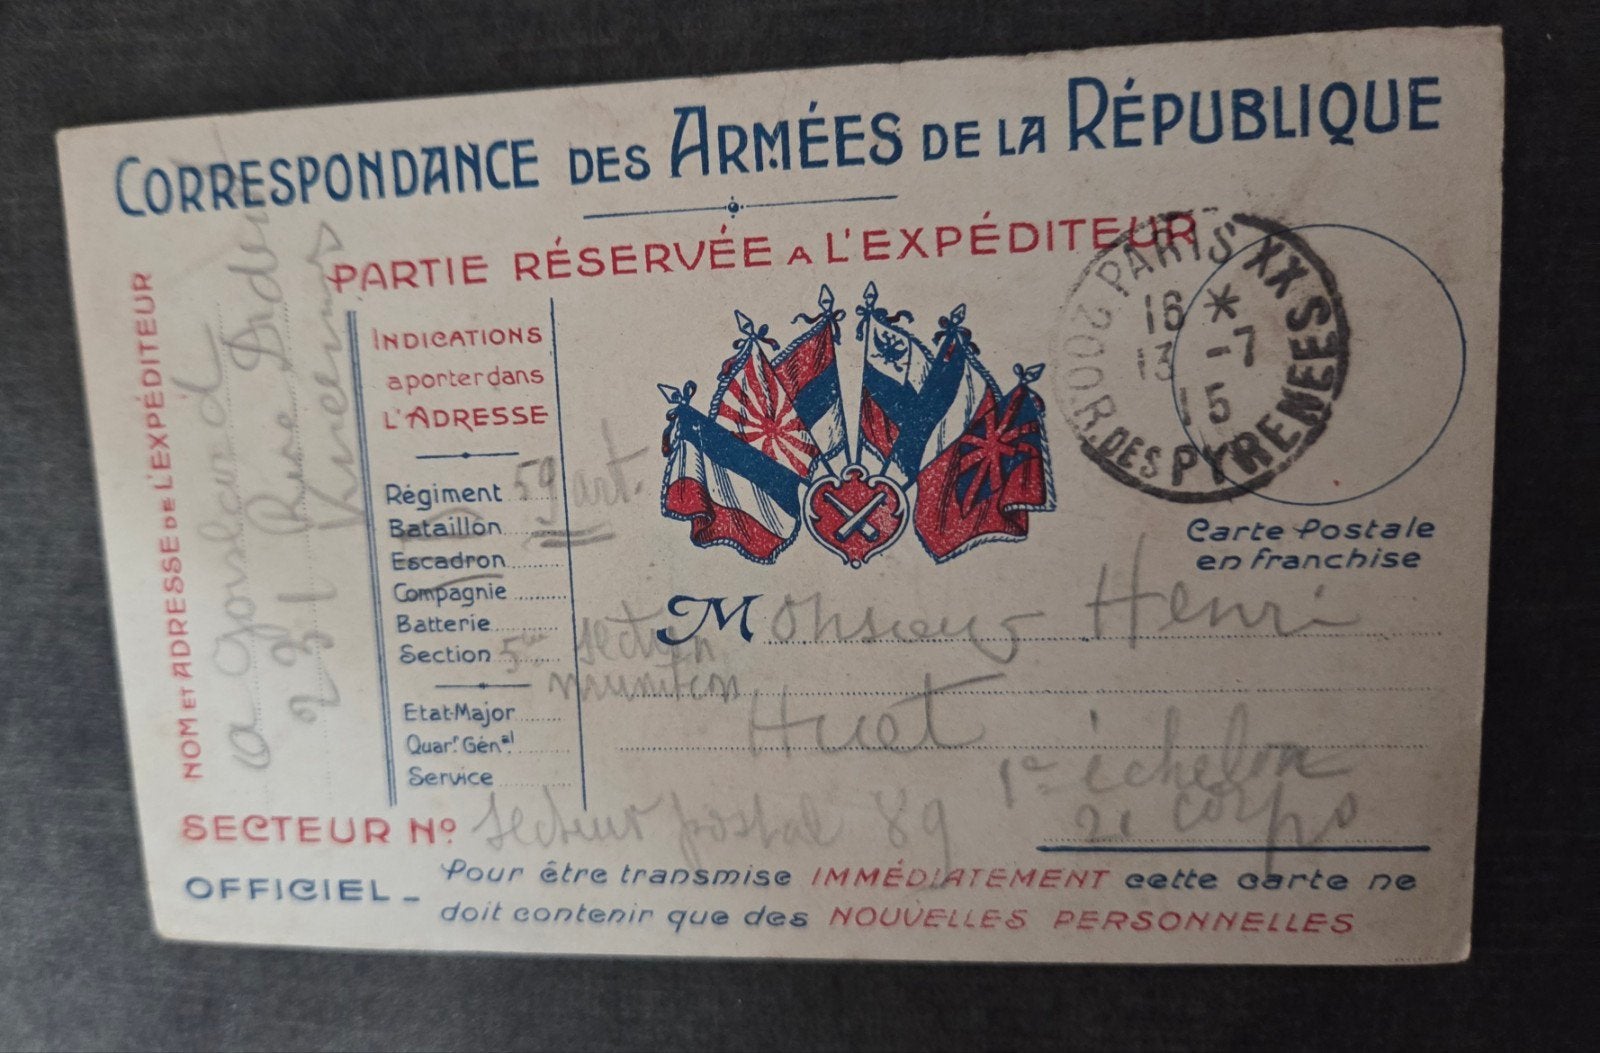 CORRESPONDANCE DES ARMÉES DE LA RÉPUBLIQUE
PARTIE RÉSERVÉE A L'EXPÉDITEUR
NOM ET ADRESSE DE L'EXPÉDITEUR
23 Rue
INDICATIONS
a porter dans
L'ADRESSE
Régiment 59 art.
Bataillon
Escadron
Compagnie
Batterie
Section 5me section
munition
Etat-Major
Quar.r Gén.al
Service
PARIS XX
16 *
13 -7
15
200 R. DES PYRENEES
Carte Postale
en franchise
Monsieur Henri
Huet
1e échelon
21 corps
SECTEUR No. secteur postal 89
OFFICIEL - Pour être transmise IMMÉDIATEMENT cette carte ne
doit contenir que des NOUVELLES PERSONNELLES